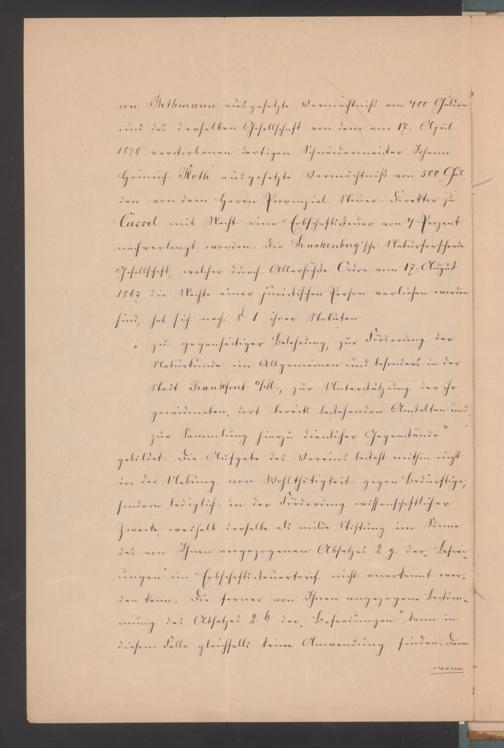 von Bethmann ausgesetzte Vermächtniß von 400 Gulden
und das derselben Gesellschaft von dem am 17. April
1878 verstorbenen dortigen Schneidermeister Johann
Heinrich Roth ausgesetzte Vermächtniß von 500 Gul-
den von dem Herrn Provinzial-Steuer-Direktor zu
Cassel mit Recht eine Erbschaftssteuer von 4 Prozent
nachverlangt worden. Die Senckenberg'sche Naturforschende
Gesellschaft, welcher durch Allerhöchste Ordre vom 17. August
1867 die Rechte einer juristischen Person verliehen worden
sind, hat sich nach § 1 ihrer Statuten
„zu gegenseitiger Belehrung, zur Förderung der
Naturkunde im Allgemeinen und besonders in der
Stadt Frankfurt a/M., zur Unterstützung der ihr
gewidmeten, dort bereits bestehenden Anstalten und
zur Sammlung hierzu dienlicher Gegenstände"
gebildet. Die Aufgabe des Vereins besteht mithin nicht
in der Uebung von Wohlthätigkeit gegen Bedürftige,
sondern lediglich in der Förderung wissenschaftlicher
Zwecke, weshalb derselbe als milde Stiftung im Sinne
des von Ihnen angezogenen Absatzes 2 g. der „Befrei-
ungen" im Erbschaftssteuertarif nicht anerkannt wer-
den kann. Die ferner von Ihnen angezogene Bestim-
mung des Absatzes 2 h der „Befreiungen" kann in
diesem Falle gleichfalls keine Anwendung finden. Denn
wenn